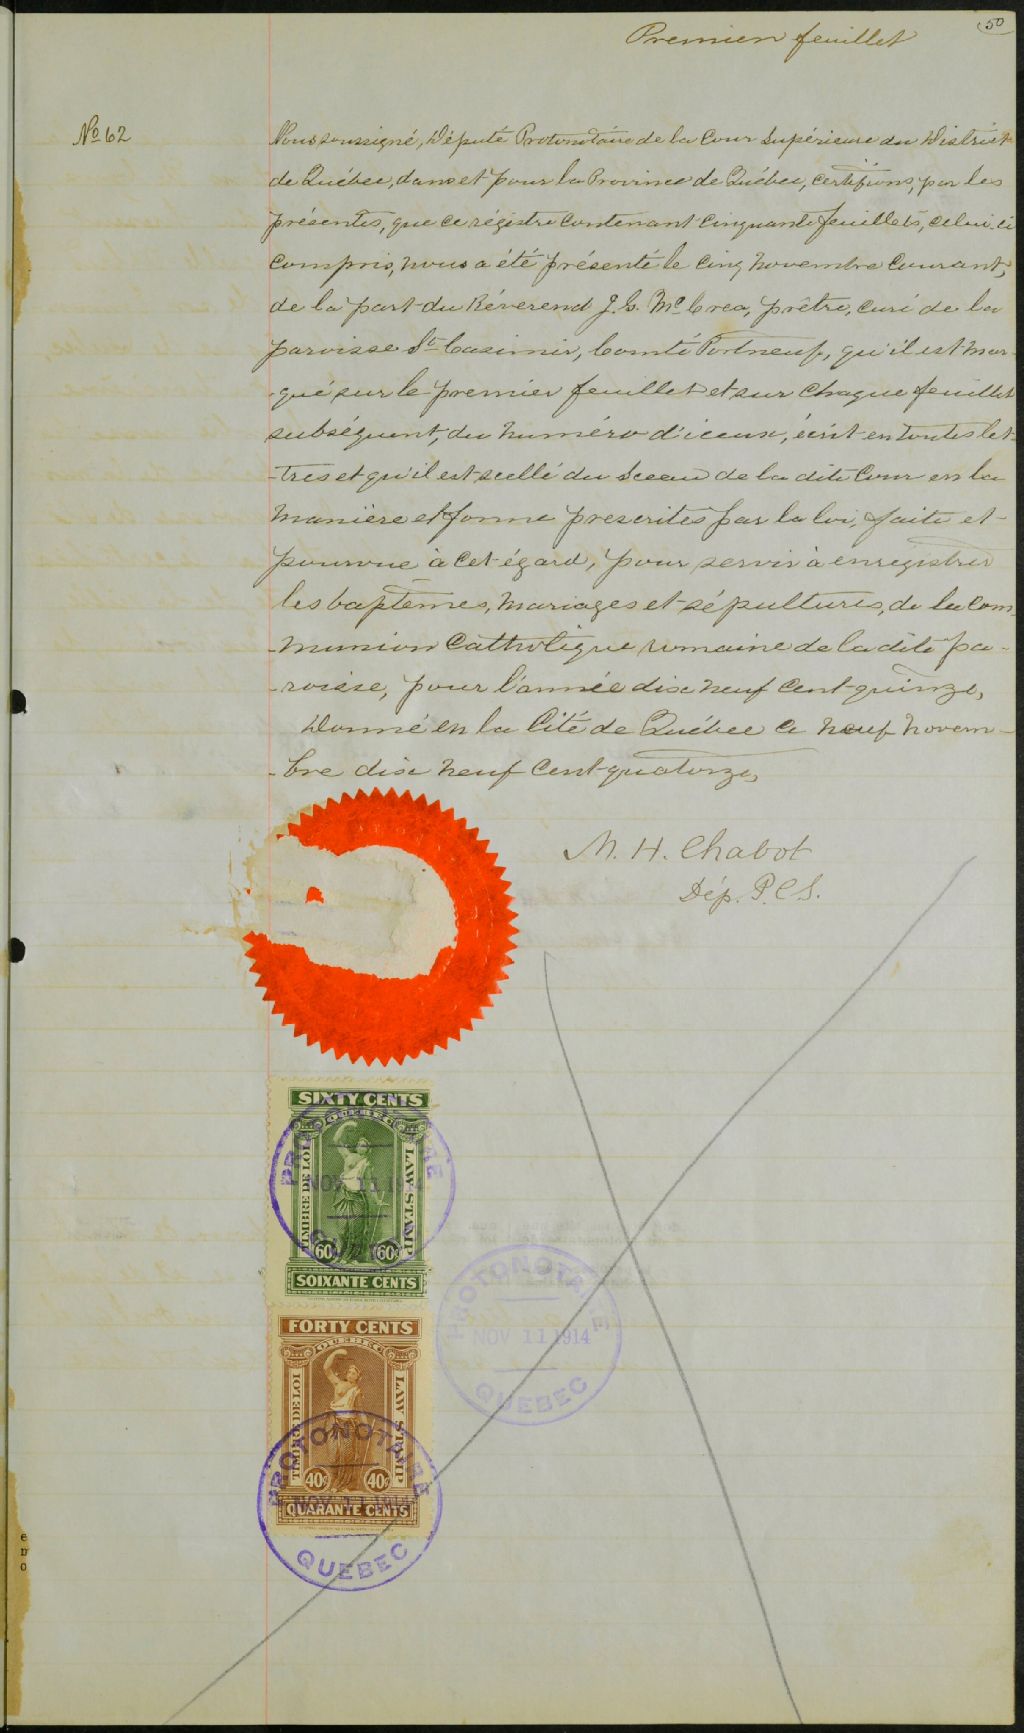 50
Premier feuillet
No 62
Nous soussigné, Député Protonotaire de la Cour Supérieure du District
de Québec, dans et pour la Province de Québec, certifions, par les
présentes, que ce régistre contenant cinquante feuillets, celui-ci
compris, nous a été présenté le cinq novembre courant,
de la part du Révérend J. G. McCrea, prêtre, curé de la
paroisse St Casimir, Comté Portneuf, qu'il est mar-
-qué sur le premier feuillet et sur chaque feuillet
subséquent, du numéro d'iceux, écrit en toutes let-
-tres et qu'il est scellé du Sceau de la dite Cour en la
manière et forme prescrites par la loi, faite et
pourvue à cet égard, pour servir à enregistrer
les baptêmes, mariages et sépultures, de la Com-
-munion Catholique romaine de la dite pa-
-roisse, pour l'année dix neuf cent quinze,
Donné en la Cité de Québec ce neuf novem-
-bre dix neuf cent quatorze,
M. H. Chabot
Dép. P.C.S.
SIXTY CENTS
QUEBEC
TIMBRE DE LOI
LAW STAMP
60c 60c
SOIXANTE CENTS
PROTONOTAIRE
NOV 11 1914
QUEBEC
FORTY CENTS
QUEBEC
TIMBRE DE LOI
LAW STAMP
40c 40c
QUARANTE CENTS
PROTONOTAIRE
NOV 11 1914
QUEBEC
PROTONOTAIRE
NOV 11 1914
QUEBEC